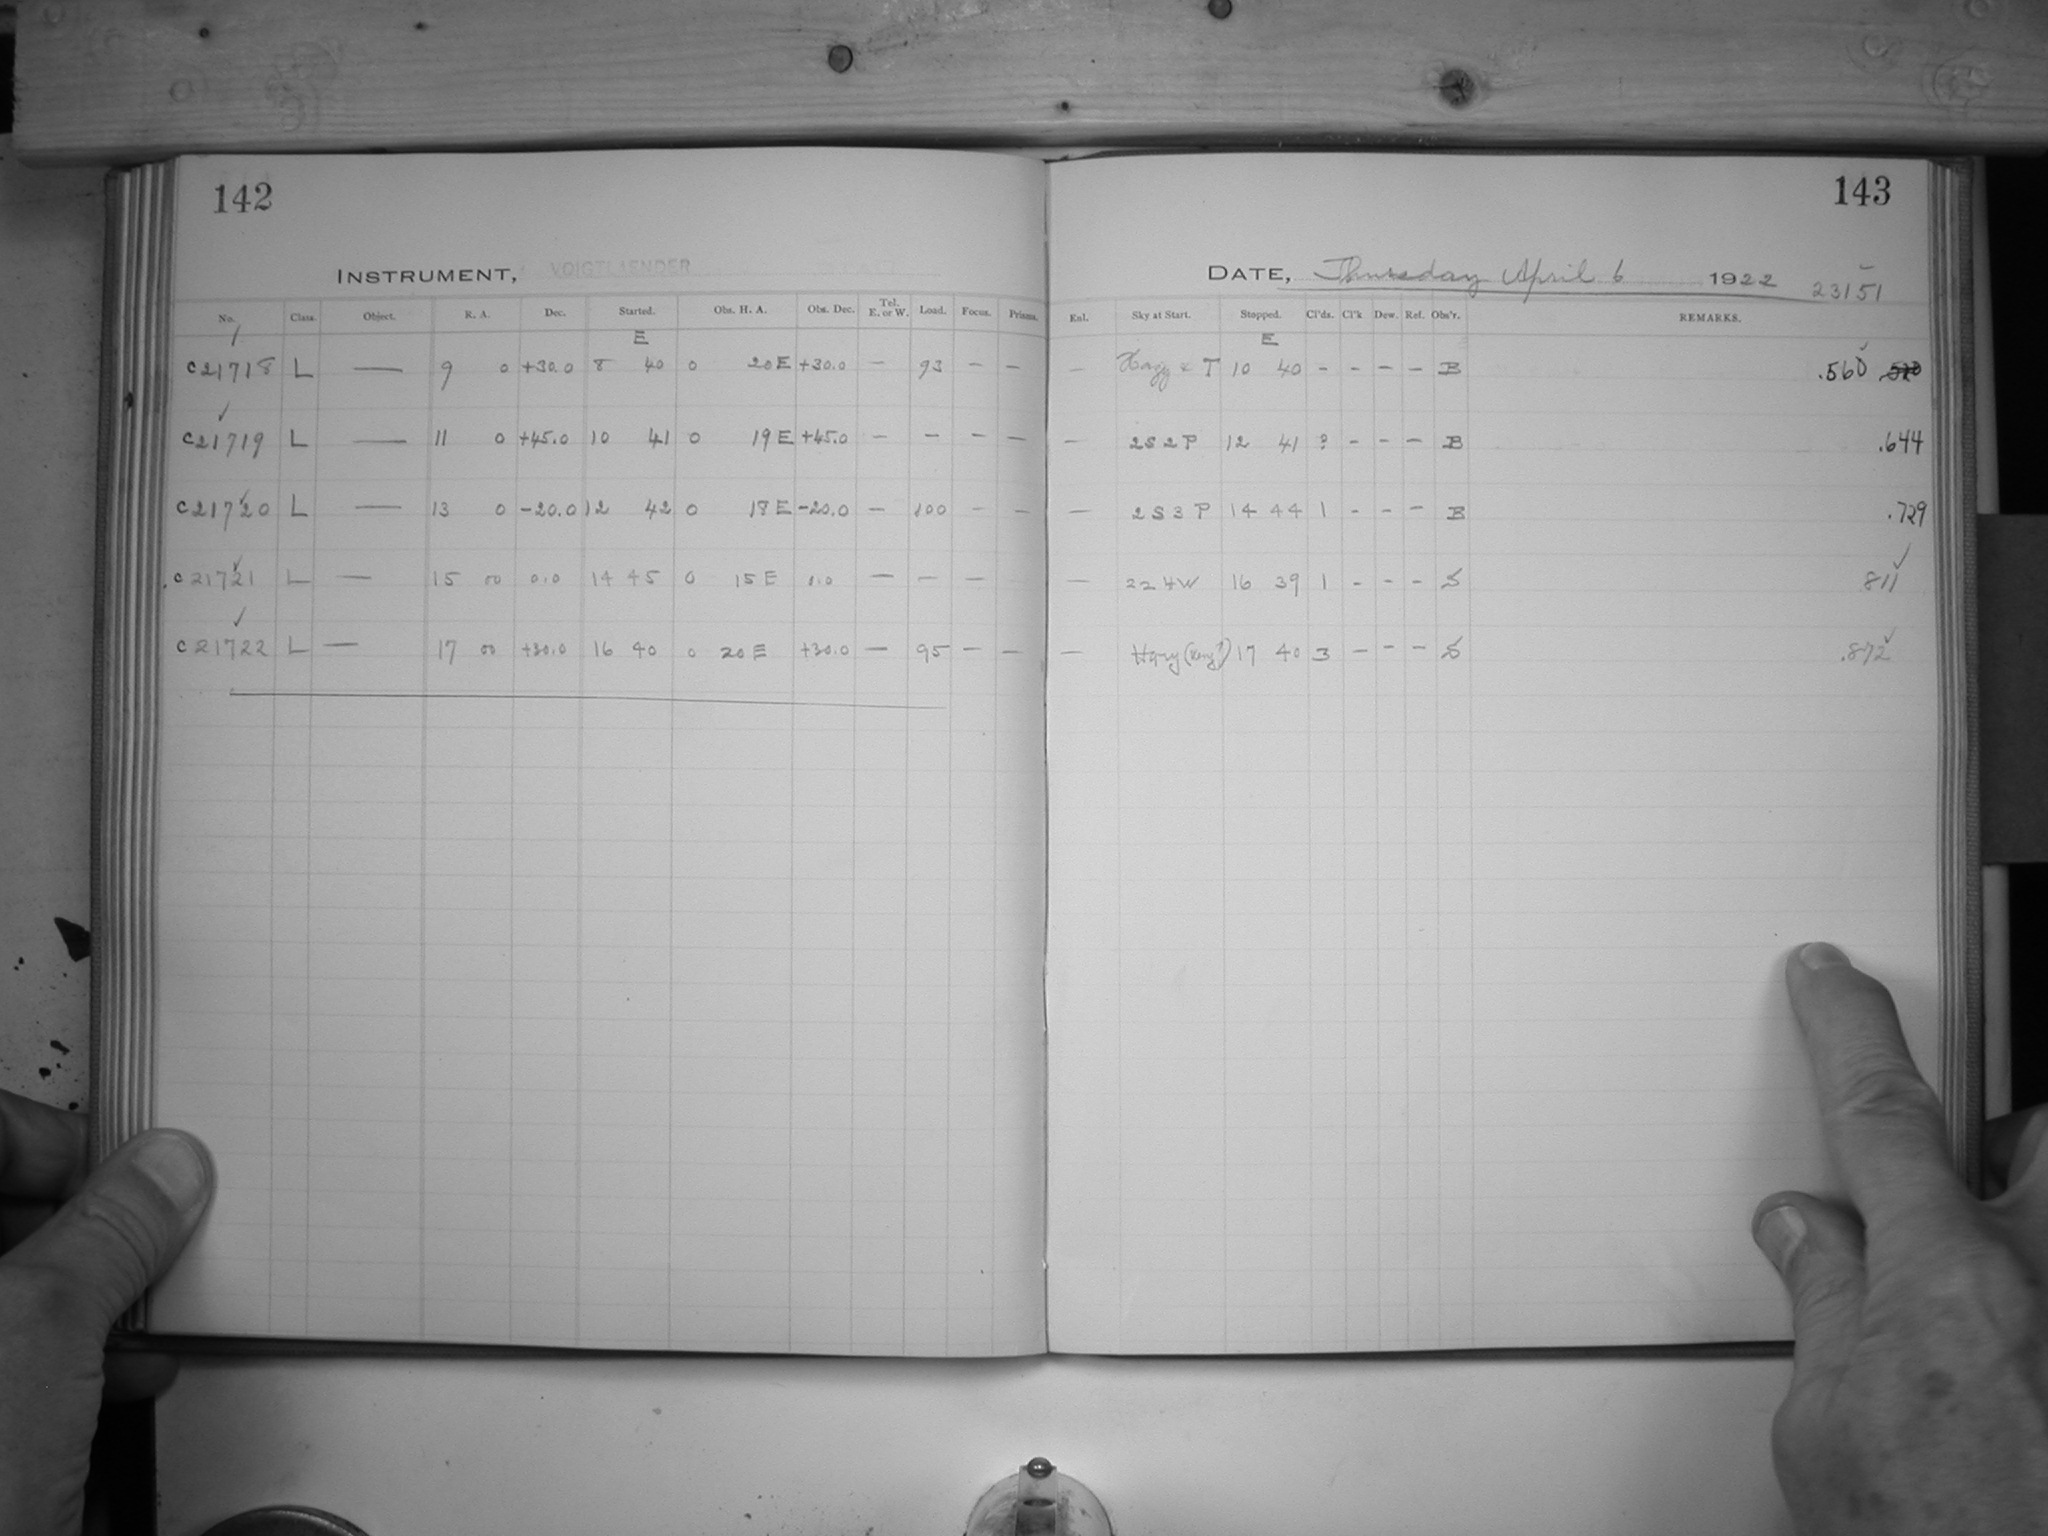 142
INSTRUMENT, VOIGTLAENDER
No. Class. Object. R. A. Dec. Started. Obs. H. A. Obs. Dec. Tel. E. or W. Load. Focus. Prisms.
E
c21718 L — 9 0 +30.0 8 40 0 20E +30.0 — 93 — —
c21719 L — 11 0 +45.0 10 41 0 19E +45.0 — — — —
c21720 L — 13 0 -20.0 12 42 0 18E -20.0 — 100 — —
c21721 L — 15 00 0.0 14 45 0 15E 0.0 — — —
c21722 L — 17 00 +30.0 16 40 0 20E +30.0 — 95 — —
143
DATE, Thursday April 6 1922 23151
Enl. Sky at Start. Stopped. Cl'ds. Cl'k Dew. Ref. Obs'r. REMARKS.
E
— Hazy & T 10 40 - - - - B .560
— 2S2P 12 41 ? - - - B .644
— 2S3P 14 44 1 - - - B .729
— 224W 16 39 1 - - - S 811
— Hazy 17 40 3 - - - S .872